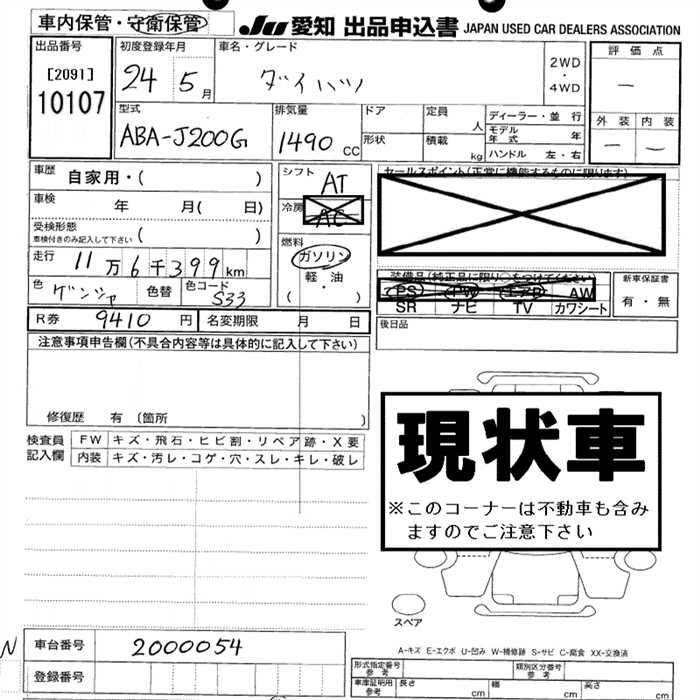 車内保管・守衛保管 JU 愛知 出品申込書 JAPAN USED CAR DEALERS ASSOCIATION
出品番号 初度登録年月 車名・グレード 評価点
[2091] 24 5月 ダイハツ 2WD・4WD 一
10107 型式 排気量 ドア 定員 人 ディーラー・並行 外装 内装
ABA-J200G 1490 CC 形状 積載 kg モデル年式 年 一 一
ハンドル 左・右
車歴 自家用・( ) シフト AT セールスポイント(正常に機能するものに限ります)
車検 年 月( 日) 冷房 AC
受検形態 車検付きのみ記入して下さい ( ) 燃料
走行 11万6千399km ガソリン 装備品(純正品に限り○をつけてください) 新車保証書
軽・油 PS PW エアB AW 有・無
色 ゲンシャ 色替 色コード S33 ( ) SR ナビ TV カワシート
R券 9410円 名変期限 月 日 後日品
注意事項申告欄(不具合内容等は具体的に記入して下さい)
現状車
修復歴 有 (箇所 )
検査員記入欄 FW キズ・飛石・ヒビ割・リペア跡・X要
内装 キズ・汚レ・コゲ・穴・スレ・キレ・破レ
※このコーナーは不動車も含み
ますのでご注意下さい
スペア
A-キズ E-エクボ U-凹み W-補修跡 S-サビ C-腐食 XX-交換済
N 車台番号 2000054
登録番号
形式指定番号 参考 類別区分番号 参考
車庫証明用 参考 長さ cm 幅 cm 高さ cm